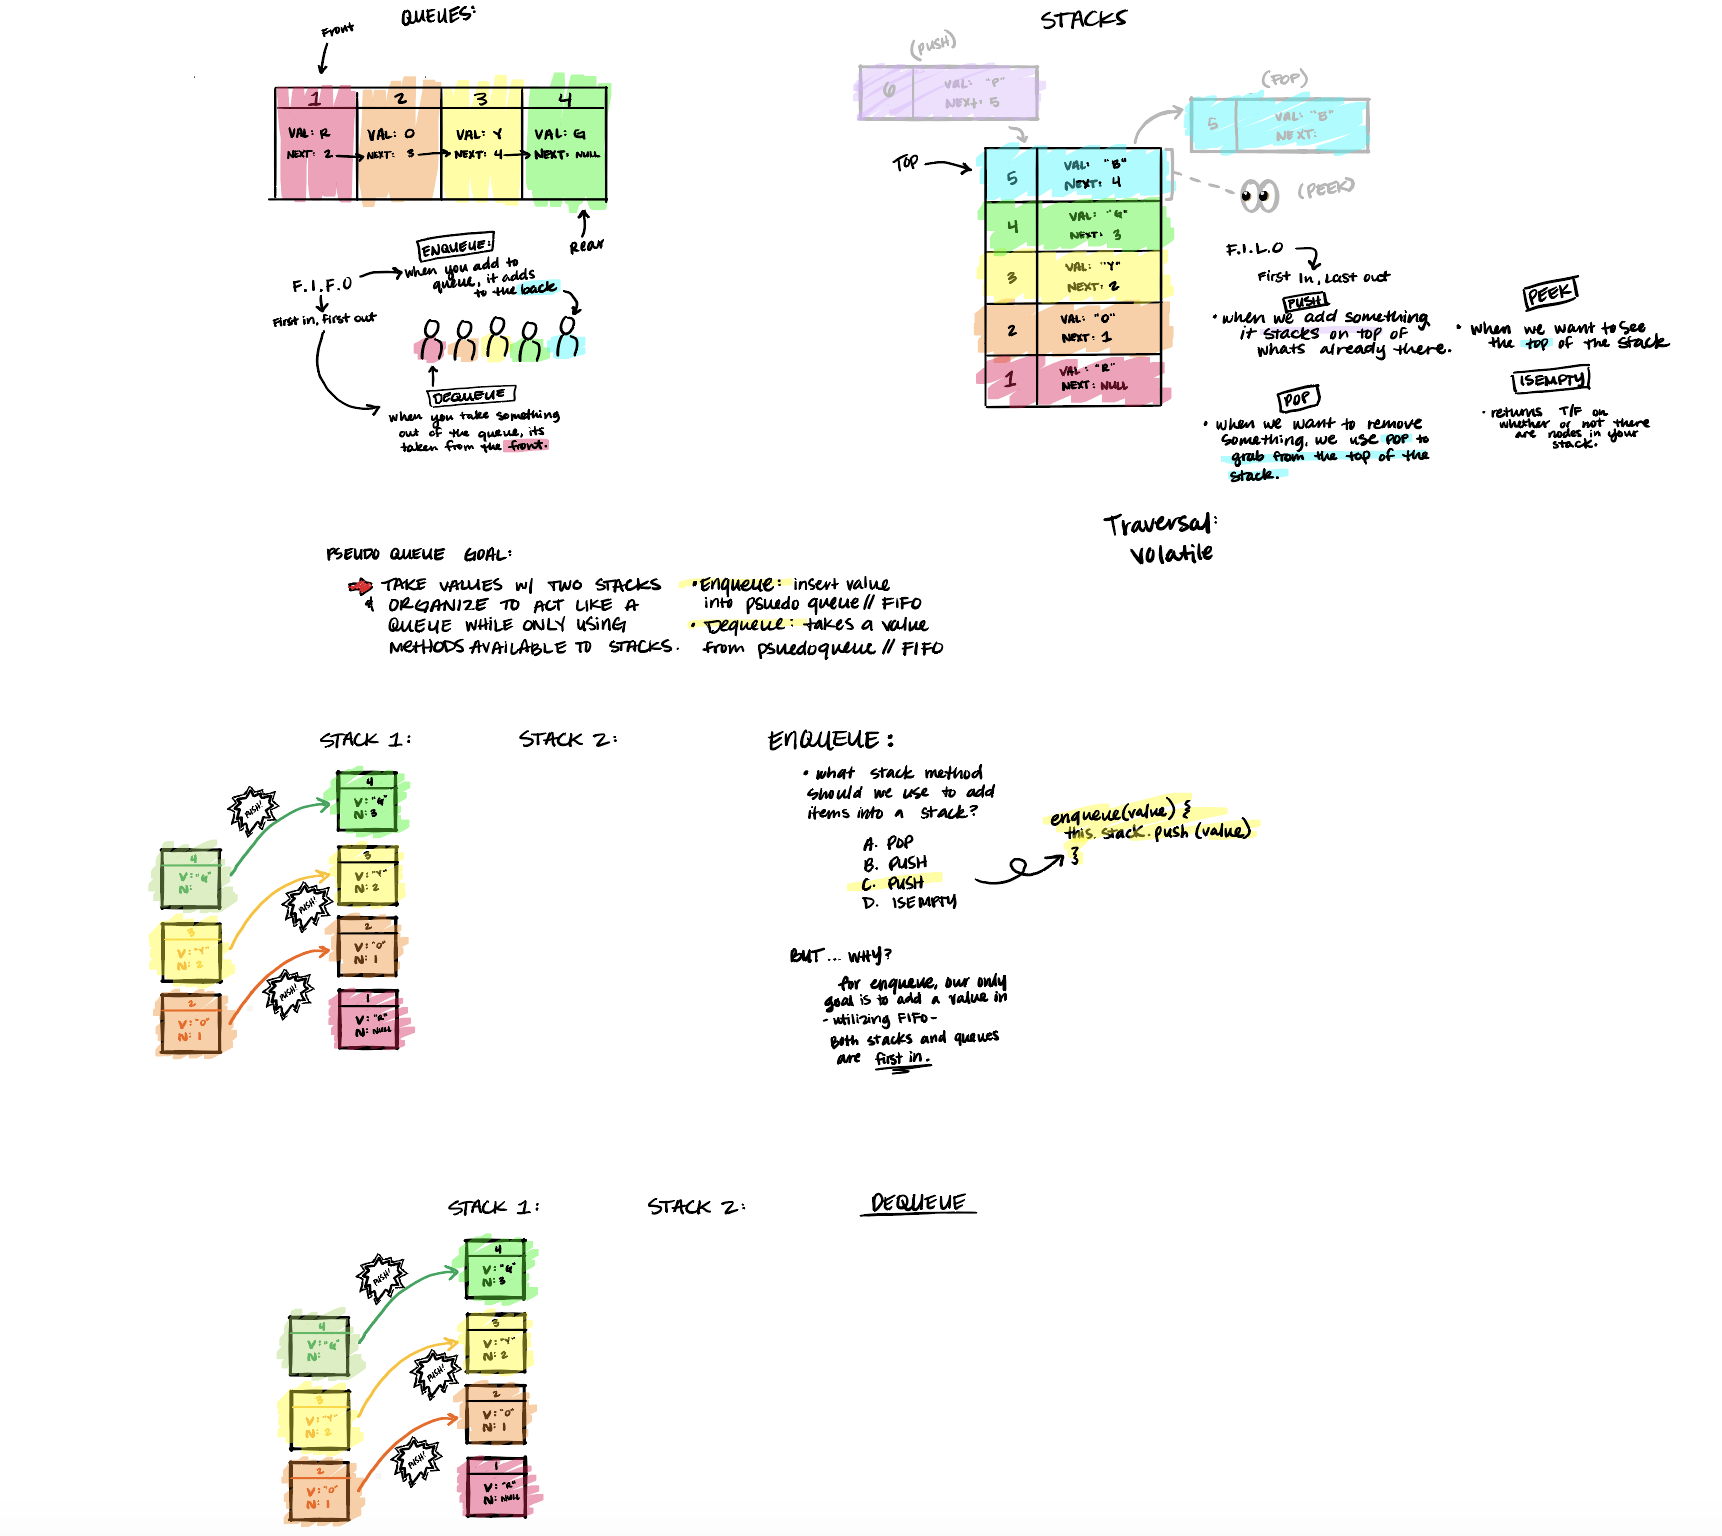 QUEUES:
Front
1 2 3 4
VAL: R VAL: O VAL: Y VAL: G
NEXT: 2 NEXT: 3 NEXT: 4 NEXT: NULL
Rear
F.I.F.O
First in, first out
ENQUEUE:
when you add to
queue, it adds
to the back
DEQUEUE
when you take something
out of the queue, its
taken from the front.
STACKS
(PUSH)
6
VAL: "P"
NEXT: 5
(POP)
5
VAL: "B"
NEXT:
TOP
5
VAL: "B"
NEXT: 4
4
VAL: "G"
NEXT: 3
3
VAL: "Y"
NEXT: 2
2
VAL: "O"
NEXT: 1
1
VAL: "R"
NEXT: NULL
(PEEK)
F.I.L.O
First In, Last out
PUSH
• when we add something
it stacks on top of
whats already there.
POP
• when we want to remove
something, we use POP to
grab from the top of the
stack.
PEEK
• when we want to see
the top of the stack
ISEMPTY
• returns T/F on
whether or not there
are nodes in your
stack.
Traversal:
volatile
PSEUDO QUEUE GOAL:
TAKE VALUES W/ TWO STACKS
& ORGANIZE TO ACT LIKE A
QUEUE WHILE ONLY USING
METHODS AVAILABLE TO STACKS.
• Enqueue: insert value
into psuedo queue // FIFO
• Dequeue: takes a value
from psuedoqueue // FIFO
STACK 1: STACK 2:
4
V: "G"
N: 3
PUSH!
4
V: "G"
N:
3
V: "Y"
N: 2
PUSH!
3
V: "Y"
N: 2
2
V: "O"
N: 1
PUSH!
2
V: "O"
N: 1
1
V: "R"
N: NULL
ENQUEUE:
• what stack method
should we use to add
items into a stack?
A. POP
B. PUSH
C. PUSH
D. ISEMPTY
enqueue(value) {
this.stack.push(value)
}
BUT... WHY?
for enqueue, our only
goal is to add a value in
- utilizing FIFO -
Both stacks and queues
are first in.
STACK 1: STACK 2: DEQUEUE
4
V: "G"
N: 3
PUSH!
4
V: "G"
N:
3
V: "Y"
N: 2
PUSH!
3
V: "Y"
N: 2
2
V: "O"
N: 1
PUSH!
2
V: "O"
N: 1
1
V: "R"
N: NULL